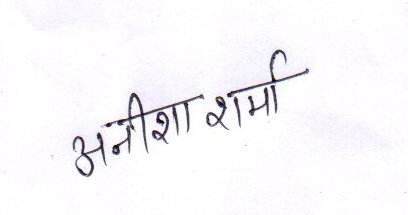 अनीशा शर्मा